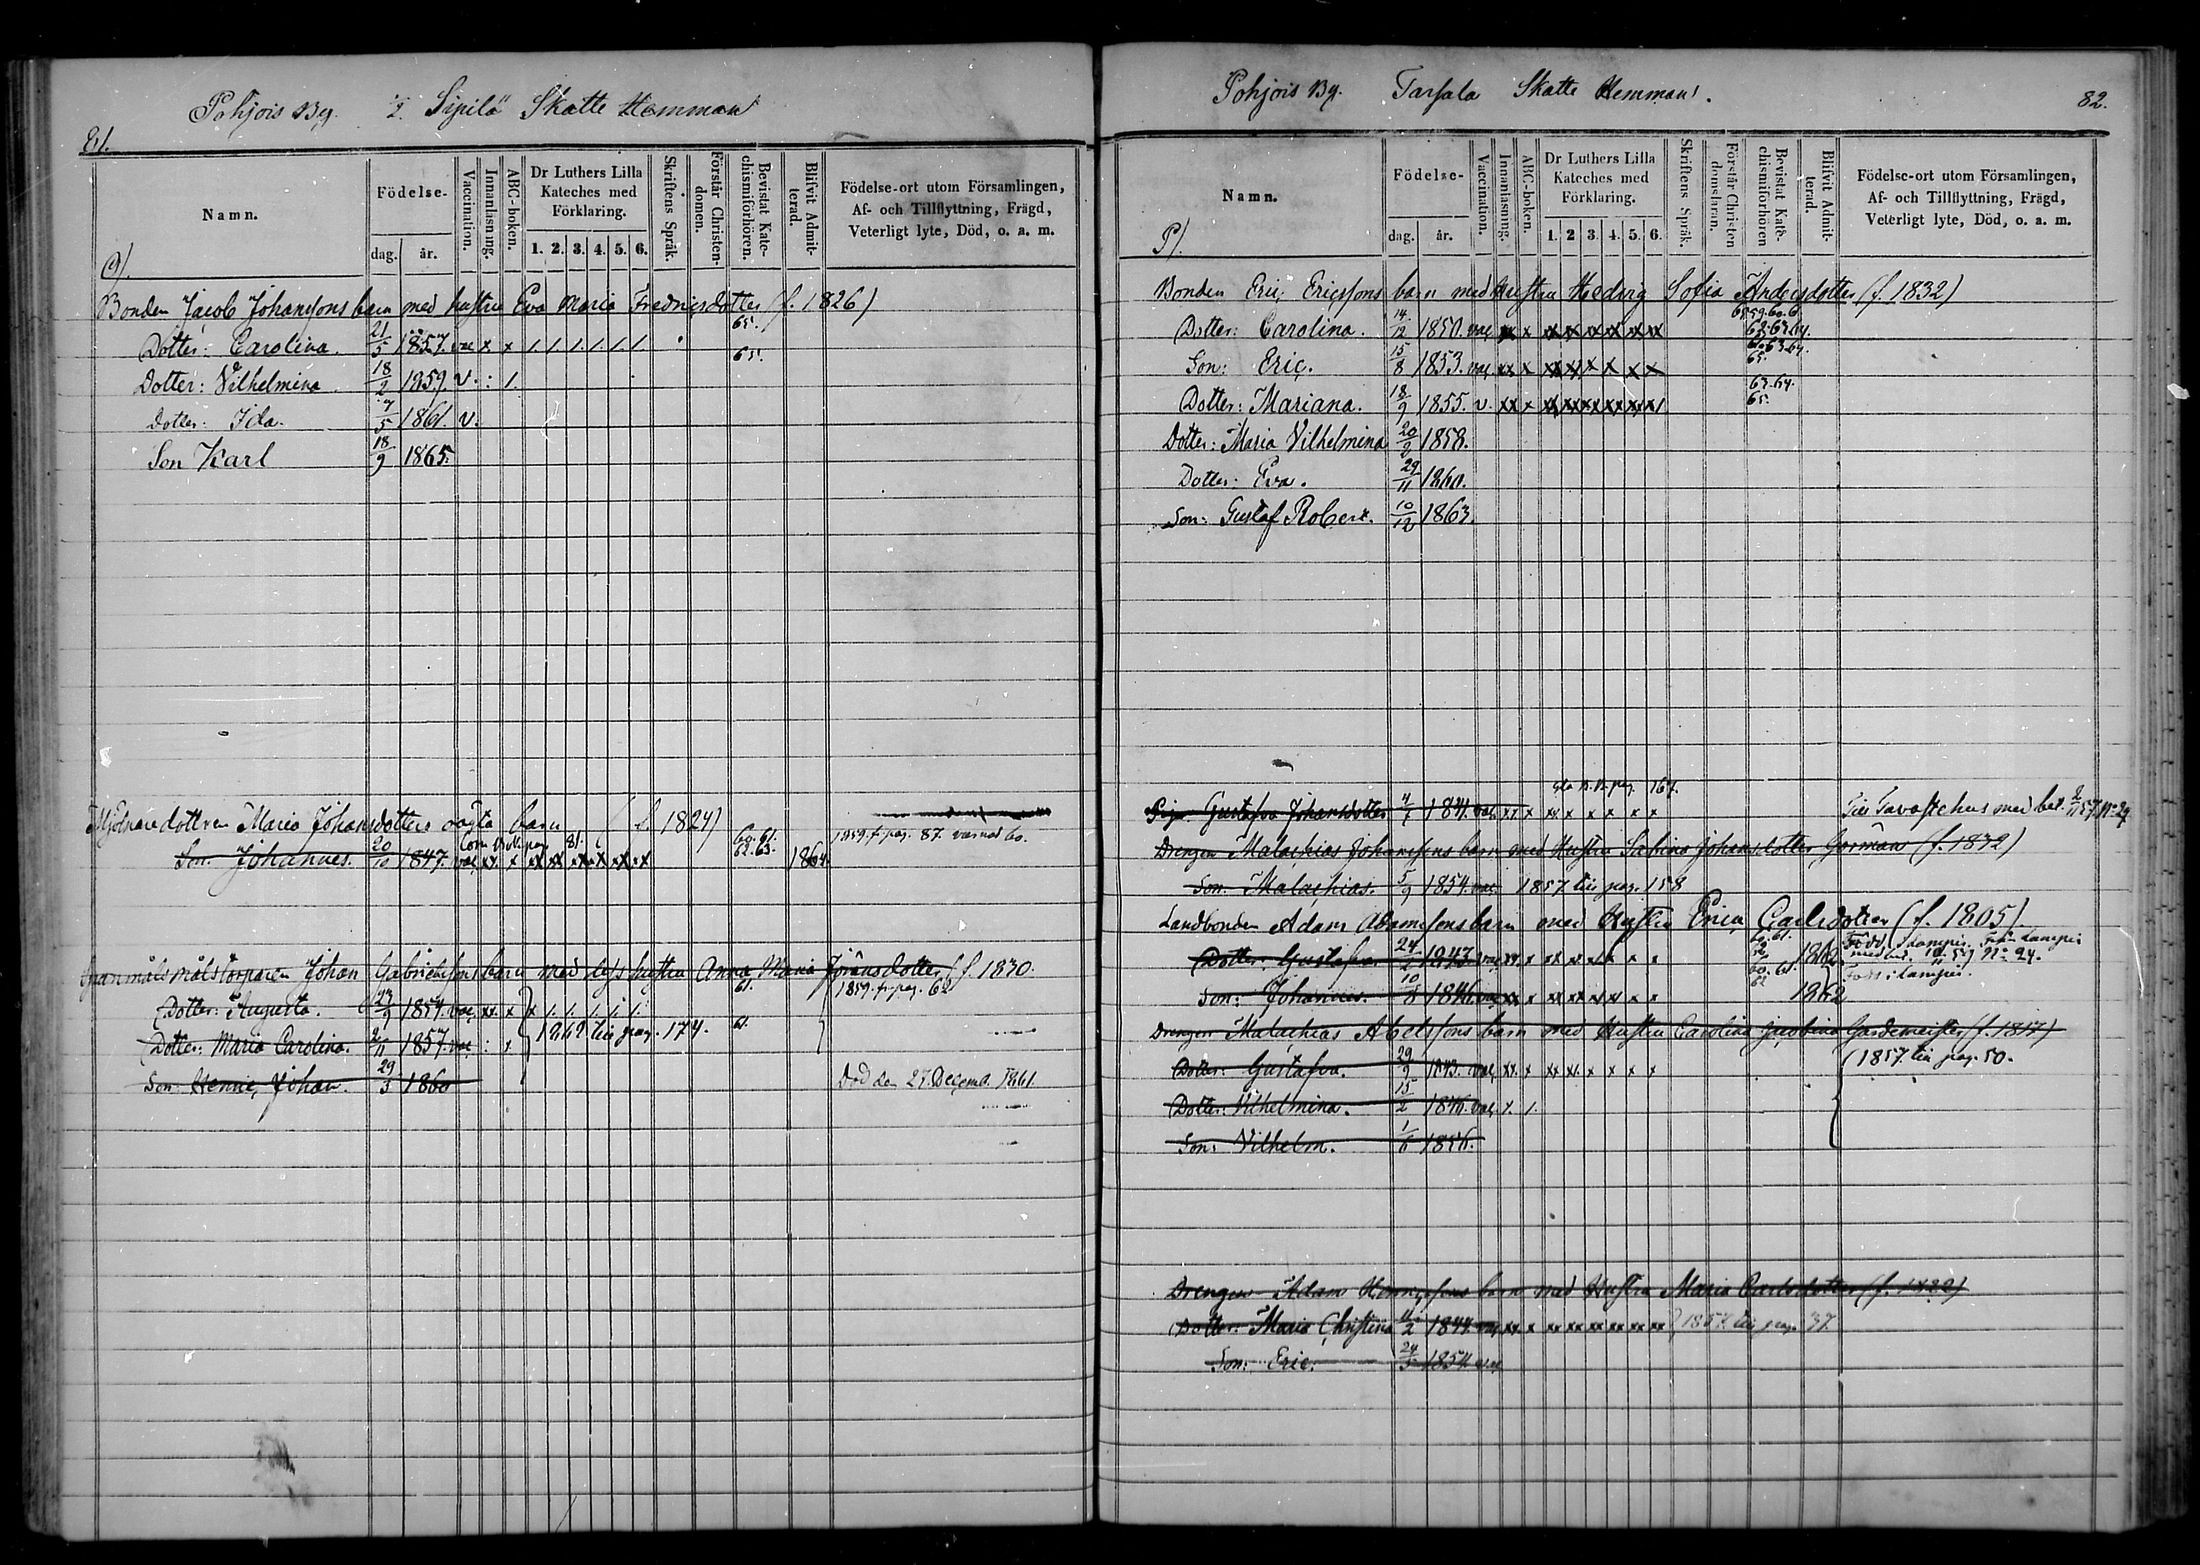 81.
Pohjois By. 2. Sipilä Skatte Hemman
Namn.
Födelse-
dag. år.
Vaccination.
Innanläsning.
ABC-boken.
Dr Luthers Lilla Kateches med Förklaring.
1. 2. 3. 4. 5. 6.
Skriftens Språk.
Förstår Christendomen.
Bevistat Katechismiförhören.
Blifvit Admitterad.
Födelse-ort utom Församlingen, Af- och Tillflyttning, Frägd, Veterligt lyte, Död, o. a. m.
Bonden Jacob Johanssons barn med hustru Eva Maria Fredricsdotter (f. 1826)
Dotter: Carolina. 21/5 1857. vac x x 1. 1. 1. 1. 1. 1. 65.
Dotter: Vilhelmina 18/2 1859. v. : 1. 65.
Dotter: Ida. 7/5 1861. v.
Son Karl 18/9 1865.
Mjölnaredottren Maria Johansdotters oägta barn (f. 1824)
Son: Johannes. 20/10 1847. vac xx x xx xx xx xx xx xx 60. 61. 62. 63. 1864. 1859 fr. pag. 87.
Johan Gabrielssons barn med dess hustru Anna Maria Göransdotter (f. 1830.
Dotter: Augusta. 23/9 1854. vac xx x x 1. 1. 1. 1. 1. 61. 1859. fr. pag. 62
Dotter: Maria Carolina. 2/11 1857. vac : x 1862 till pag. 174. 61.
Son: Henric Johan. 29/3 1860 Död den 27. Decemb. 1861.
Pohjois By. Tarsala Skatte Hemman.
82.
Namn.
Födelse-
dag. år.
Vaccination.
Innanläsning.
ABC-boken.
Dr Luthers Lilla Kateches med Förklaring.
1. 2 3. 4. 5. 6.
Skriftens Språk.
Förstår Christendomsläran.
Bevistat Katechismiförhören
Blifvit Admitterad.
Födelse-ort utom Församlingen, Af- och Tillflyttning, Frägd, Veterligt lyte, Död, o. a. m.
Bonden Eric Ericssons barn med Hustru Hedvig Sofia Andersdotter (f. 1832)
Dotter: Carolina. 14/12 1850. vac xx x xx xx xx xx xx xx
Son: Eric. 15/8 1853. vac xx x xx xx x x x x 65.
Dotter: Mariana. 18/9 1855. v. xx x xx xx xx xx xx x/ 63. 64. 65.
Dotter: Maria Vilhelmina 20/2 1858.
Dotter: Eva. 29/11 1860.
Son: Gustaf Robert. 10/12 1863.
Piga Gustafva Johansdotter 4/7 1841. vac xx x xx x x x x x Till Tavastehus med bet.
Drengen Malachias Johanssons barn med Hustru Sabina Johansdotter Görman (f. 1832)
Son: Malachias. 5/9 1854. vac. 1857 till pag. 158
Landbonden Adam Adamssons barn med Hustru Erica Carlsdotter (f. 1805)
Dotter: Gustafva 24/2 1843. vac xx. x xx xx xx x x x 1862
Son: Johannes. 10/8 1846. vac xx x xx xx xx x x 1862 Född i Lampis.
Drengen Malachias Abelssons barn med Hustru Carolina Jacobina Gardemeister (f. 1817)
Dotter: Gustafva. 29/9 1843. vac xx. x xx xx. x x x x (1857. till pag. 50.
Dotter: Vilhelmina. 15/2 1846. vac x. 1.
Son: Vilhelm. 1/6 1856.
Drengen Adam Henricssons barn med Hustru Maria Carlsdotter (f. 1822)
Dotter: Maria Christina 11/2 1844. vac xx. x xx xx xx xx xx xx 1857. till pag. 37.
Son: Eric. 24/5 1854 vac